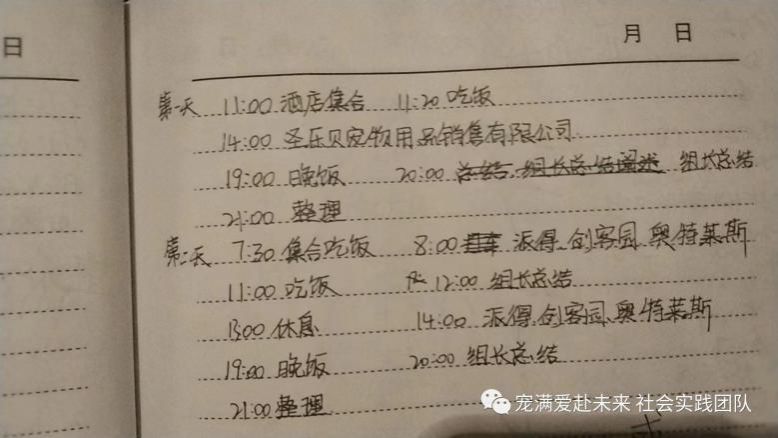 日
月 日
第一天 11:00 酒店集合 11:20 吃饭
14:00 圣乐贝宠物用品销售有限公司
19:00 晚饭 20:00 总结、组长总结阐述 组长总结
21:00 整理
第二天 7:30 集合吃饭 8:00 派得、剑客园、奥特莱斯
11:00 吃饭 12:00 组长总结
13:00 休息 14:00 派得、剑客园、奥特莱斯
19:00 晚饭 20:00 组长总结
21:00 整理
宠满爱赴未来 社会实践团队